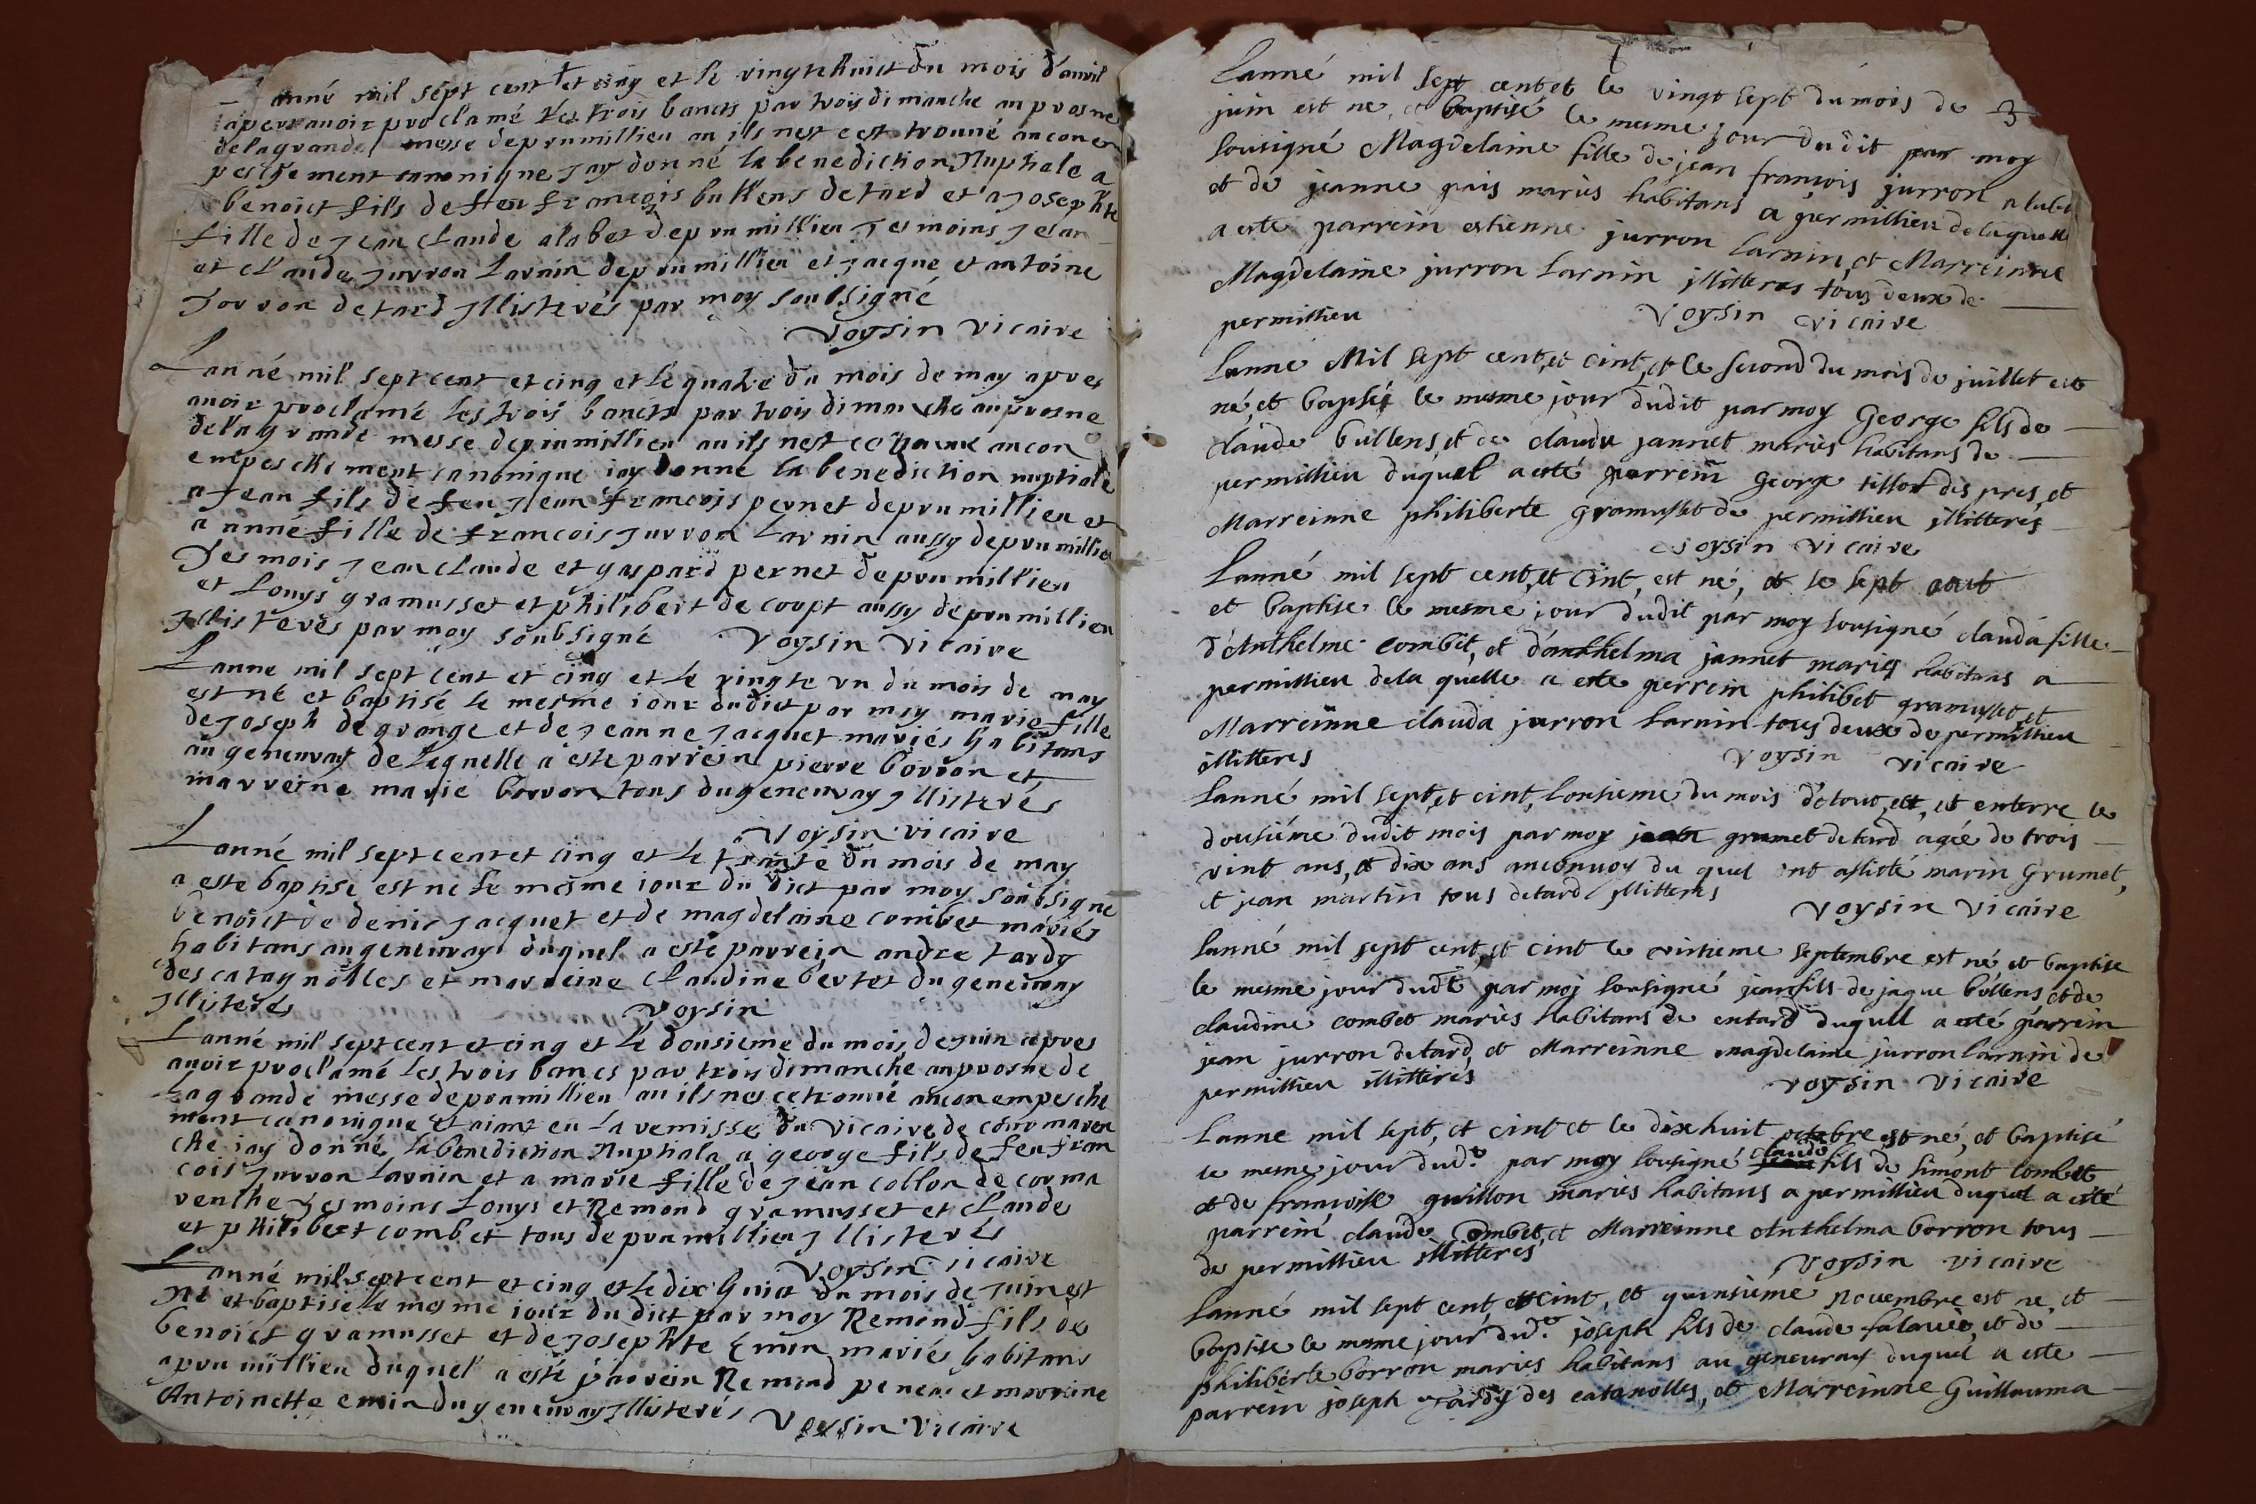 Lanné mil sept cent et cinq et le vingtehuict du mois d'auvil
apers auoir proclamé les trois bancts par trois dimanche au prosne
de la grande messe de prumillieu au ils nest cest trouué aucone
peschement canonique Jay donné la benediction Nuphale a
benoict fils de feu francois bullens de tard et a Josephte
fille de Jean Claude alabet de prumillieu Tesmoins Jean
et Claude Jurron Larnin de prumillieu et Jacque et antoine
Jorron de tard Jllisterés par moy soubsigné
Voysin vicaire
Lanné mil sept cent et cinq et le quatre du mois de may apres
auoir proclamé les trois bancts par trois dimanche au prosne
de la grande messe de prumillieu au ils nest ce trouué aucon
enpeschement canonique iay donné la benediction nuptiale
a Jean fils de feu Jean francois pernet de prumillieu et
a anné fille de francois Jurron Larnin aussy de prumillieu
Tesmois Jean Claude et gaspard pernet de prumillieu
et Louys gramusset et philibert de coopt aussy de prumillieu
Jllisterés par moy soubsigné Voysin Vicaire
Lanne mil sept cent et cinq et le vingte vn du mois de may
est né et baptisé le mesme iour dudict par moy marie fille
de Joseph degrange et de Jeanne Jacquet mariés habitans
au geneuray de lequelle a este parrein pierre borron et
marreine marie borron tous du geneuray Jllisterés
Voysin vicaire
Lanné mil sept cent et cinq et le trante du mois de may
a este baptisé est né le mesme iour du dict par moy soubsigne
benoict de denis Jacquet et de magdelaine combet mariés
habitans au geneuray duquel a esté parrein andre tardy
des catagnolles et marreine Claudine bertet du geneuray
Jllisterés Voysin
Lanné mil sept cent et cinq et le dousieme du mois de juin apres
auoir proclamé les trois bancs par trois dimanche au prosne de
La grande messe de prumillieu au ils nes ce trouué aucon empesche
ment canonique et aiant eu La remisse du Vicaire de cormaren
che iay donné la benediction Nuphala a george fils de feu fran
cois Jurron Larnin et a marie fille de Jean collon de corma
renche Tesmoins Louys et Remond gramusset et Claude
et philibert combet tous de prumillieu Jllisterés
Voysin Vicaire
Lanné mil sept cent et cinq et le dix huict du mois de Juin est
né et baptisé le mesme iour du dict par moy Remond fils de
benoict gramusset et de Josephte Emin mariés habitans
a prumillieu duquel a esté parrein Remond penear et marreine
Antoinette emin du geneuray Jllisterés Voysin Vicaire
Lanné mil sept cent et le vingt sept du mois de 3
juin est ne, et baptisé le mesme jour dudit par moy
sousigné Magdelaine fille de jean francois jurron
et de jeanne gais mariès habitans a permillieu de laquelle
a esté parrein estienne jurron larnin, et Marreinne
Magdelaine jurron larnin jllitteres tous deux de
permillieu Voysin vicaire
Lanne Mil sept cent, et cint, et le second du mois de juillet est
né, et baptisé le mesme jour dudit par moy George fils de
claude bullens, et de clauda jannet mariès habitans de
permillieu duquel a esté parrein George tillot des pres, et
Marreinne philiberte gramusset de permillieu jllitterés
Voysin vicaire
Lanné mil sept cent, et cint, est né, et le sept aout
et baptise le mesme jour dudit par moy sousigné clauda fille
d'Anthelme combet, et d'anthelma jannet mariès habitans a
permillieu de la quelle a esté perrein philibet gramusset et
Marreinne clauda jurron larnin tous deux de permillieu
illitteres Voysin vicaire
Lanné mil sept, et cint, lonsieme du mois d'otout, est, et enterre le
dousiéme dudit mois par moy jean grumet de tard agée de trois
vint ans, et dix ans auconuoy du quel ont assisté marin Grumet,
et jean martin tous de tard jllitteres Voysin Vicaire
Lanné mil sept cent, et cint le vintieme septembre est né et baptise
le mesme jour dudt par moj sousigné jean fils de jaque bullens et de
claudine combet mariès habitans de entard duquel a esté parrein
jean jurron de tard, et Marreinne magdelaine jurron larnin de
permillieu illitterés Voysin vicaire
Lanne mil sept, et cint et le dix huit octobre est né, et baptisé
claude
le mesme jour dudt par moy sousigné jean fils de simont combet
et de francoise guillon mariès habitans a permillieu duquel a esté
parrein claude combet, et Marreinne Anthelma borron tous
de permillieu illitteres Voysin vicaire
Lanné mil sept cent, et cint, et quinsieme Nouembre est ne, et
baptise le mesme jour dudt joseph fils de claude falauèe, et de
philiberte borron mariès habitans au geneuray duquel a esté
parrein joseph tardy des catanolles, et Marreinne Guillauma